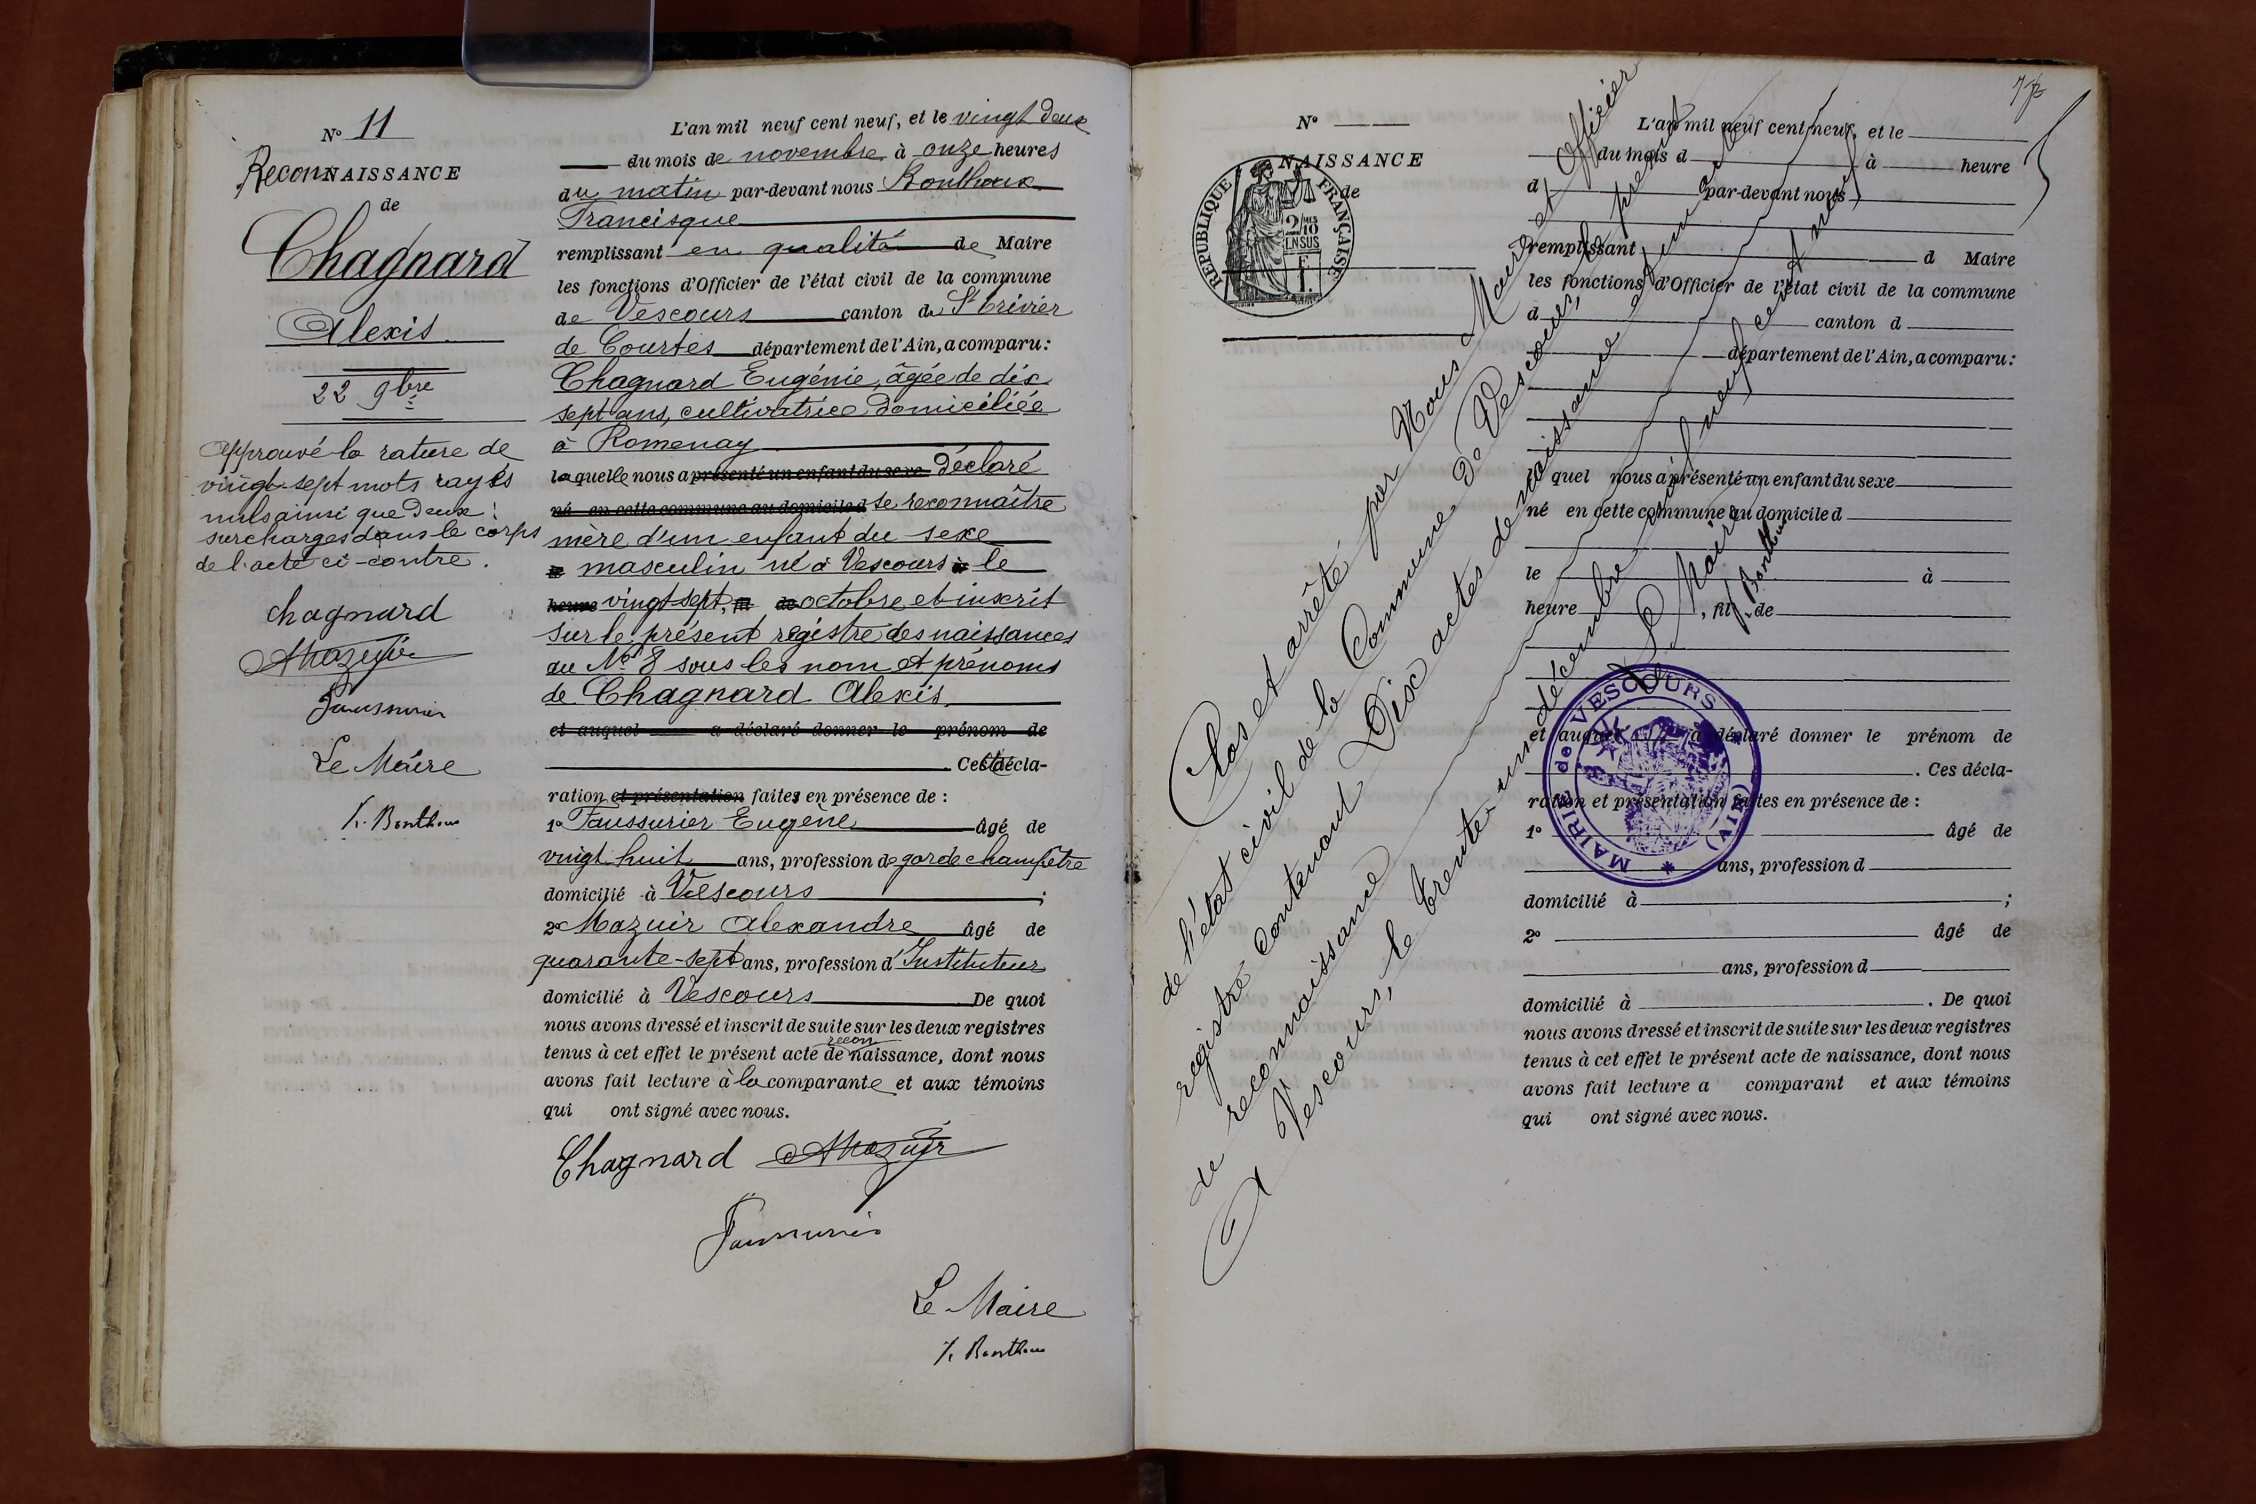 N° 11
ReconNAISSANCE
de
Chagnard
Alexis
22 9bre
Approuvé la rature de
vingt-sept mots rayés
nuls ainsi que deux
surcharges dans le corps
de l'acte ci-contre.
Chagnard
AMazuir
Faussurier
Le Maire
F. Bonthoux
L'an mil neuf cent neuf, et le vingt deux
du mois de novembre à onze heures
du matin par-devant nous Bonthoux
Francisque
remplissant en qualité de Maire
les fonctions d'Officier de l'état civil de la commune
de Vescours canton de St Trivier
de Courtes département de l'Ain, a comparu :
Chagnard Eugénie, âgée de dix
sept ans, cultivatrice domiciliée
à Romenay
laquelle nous a présenté un enfant du sexe déclaré
né en cette commune au domicile d se reconnaître
mère d'un enfant du sexe
masculin né à Vescours le
heure vingt sept, fil de octobre et inscrit
sur le présent registre des naissances
au No 8 sous les nom et prénoms
de Chagnard Alexis
et auquel a déclaré donner le prénom de
Cette décla-
ration et présentation faites en présence de :
1° Faussurier Eugène âgé de
vingt huit ans, profession de garde champêtre
domicilié à Vescours ;
2° Mazuir Alexandre âgé de
quarante-sept ans, profession d'Instituteur
domicilié à Vescours De quoi
nous avons dressé et inscrit de suite sur les deux registres
recon
tenus à cet effet le présent acte de naissance, dont nous
avons fait lecture à la comparante et aux témoins
qui ont signé avec nous.
Chagnard AMazuir
Faussurier
Le Maire
F. Bonthoux
N°
NAISSANCE
de
RÉPUBLIQUE FRANÇAISE
2/10
EN SUS
1 F.
L'an mil neuf cent neuf, et le
du mois d à heure
d par-devant nous
remplissant d Maire
les fonctions d'Officier de l'état civil de la commune
d canton d
département de l'Ain, a comparu :
l quel nous a présenté un enfant du sexe
né en cette commune au domicile d
le à
heure , fil de
et auquel a déclaré donner le prénom de
. Ces décla-
ration et présentation faites en présence de :
1° âgé de
ans, profession d
domicilié à ;
2° âgé de
ans, profession d
domicilié à . De quoi
nous avons dressé et inscrit de suite sur les deux registres
tenus à cet effet le présent acte de naissance, dont nous
avons fait lecture a comparant et aux témoins
qui ont signé avec nous.
Clos et arrêté par Nous Maire et Officier
de l'état civil de la Commune de Vescours, le présent
registre contenant Dix actes de naissance et un acte
de reconnaissance
A Vescours, le trente un décembre mil neuf cent neuf
Le Maire
F. Bonthoux
MAIRIE de VESCOURS (AIN)